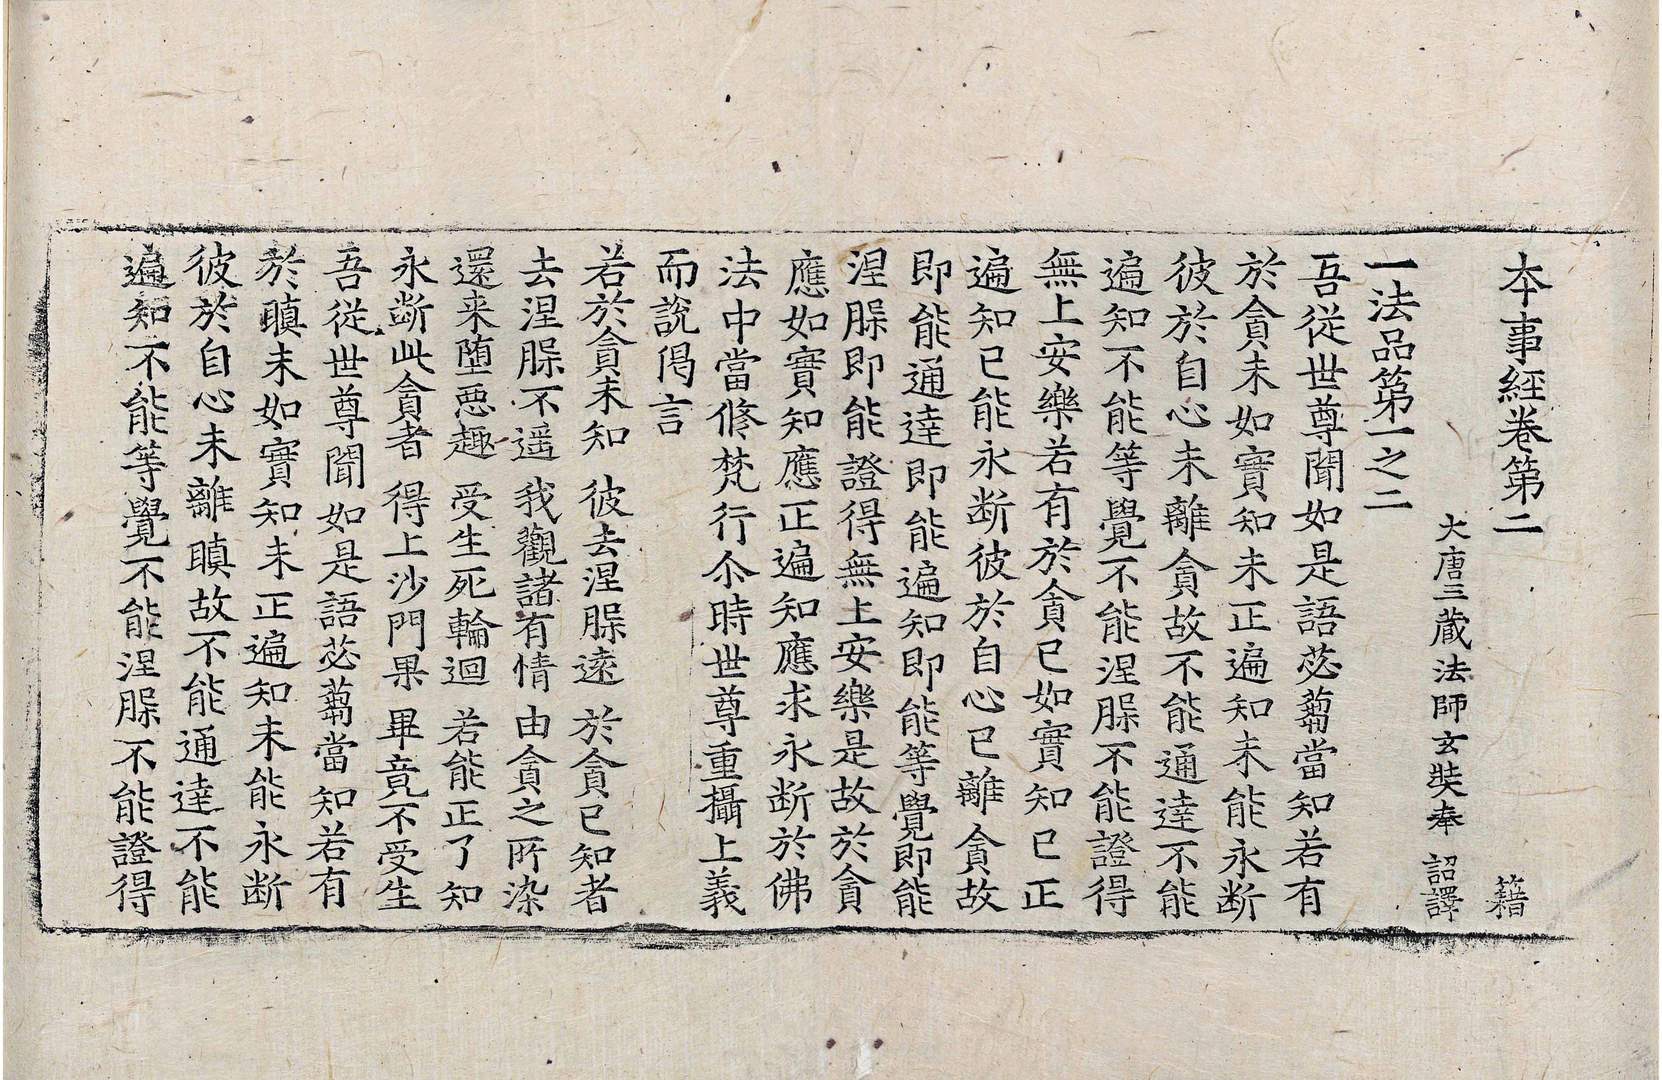 夲事經卷第二 籍
大唐三蔵法師玄奘奉 詔譯
一法品第一之二
吾從世尊聞如是語苾蒭當知若有
於貪未如實知未正遍知未能永断
彼於自心未離貪故不能通達不能
遍知不能等覺不能涅槃不能證得
無上安樂若有於貪已如實知已正
遍知已能永断彼於自心已離貪故
即能通達即能遍知即能等覺即能
涅槃即能證得無上安樂是故於貪
應如實知應正遍知應求永断於佛
法中當修梵行尒時世尊重攝上義
而說偈言
若於貪未知 彼去涅槃遠 於貪已知者
去涅槃不遥 我觀諸有情 由貪之所染
還来堕惡趣 受生死輪迴 若能正了知
永断此貪者 得上沙門果 畢竟不受生
吾從世尊聞如是語苾蒭當知若有
於瞋未如實知未正遍知未能永断
彼於自心未離瞋故不能通達不能
遍知不能等覺不能涅槃不能證得